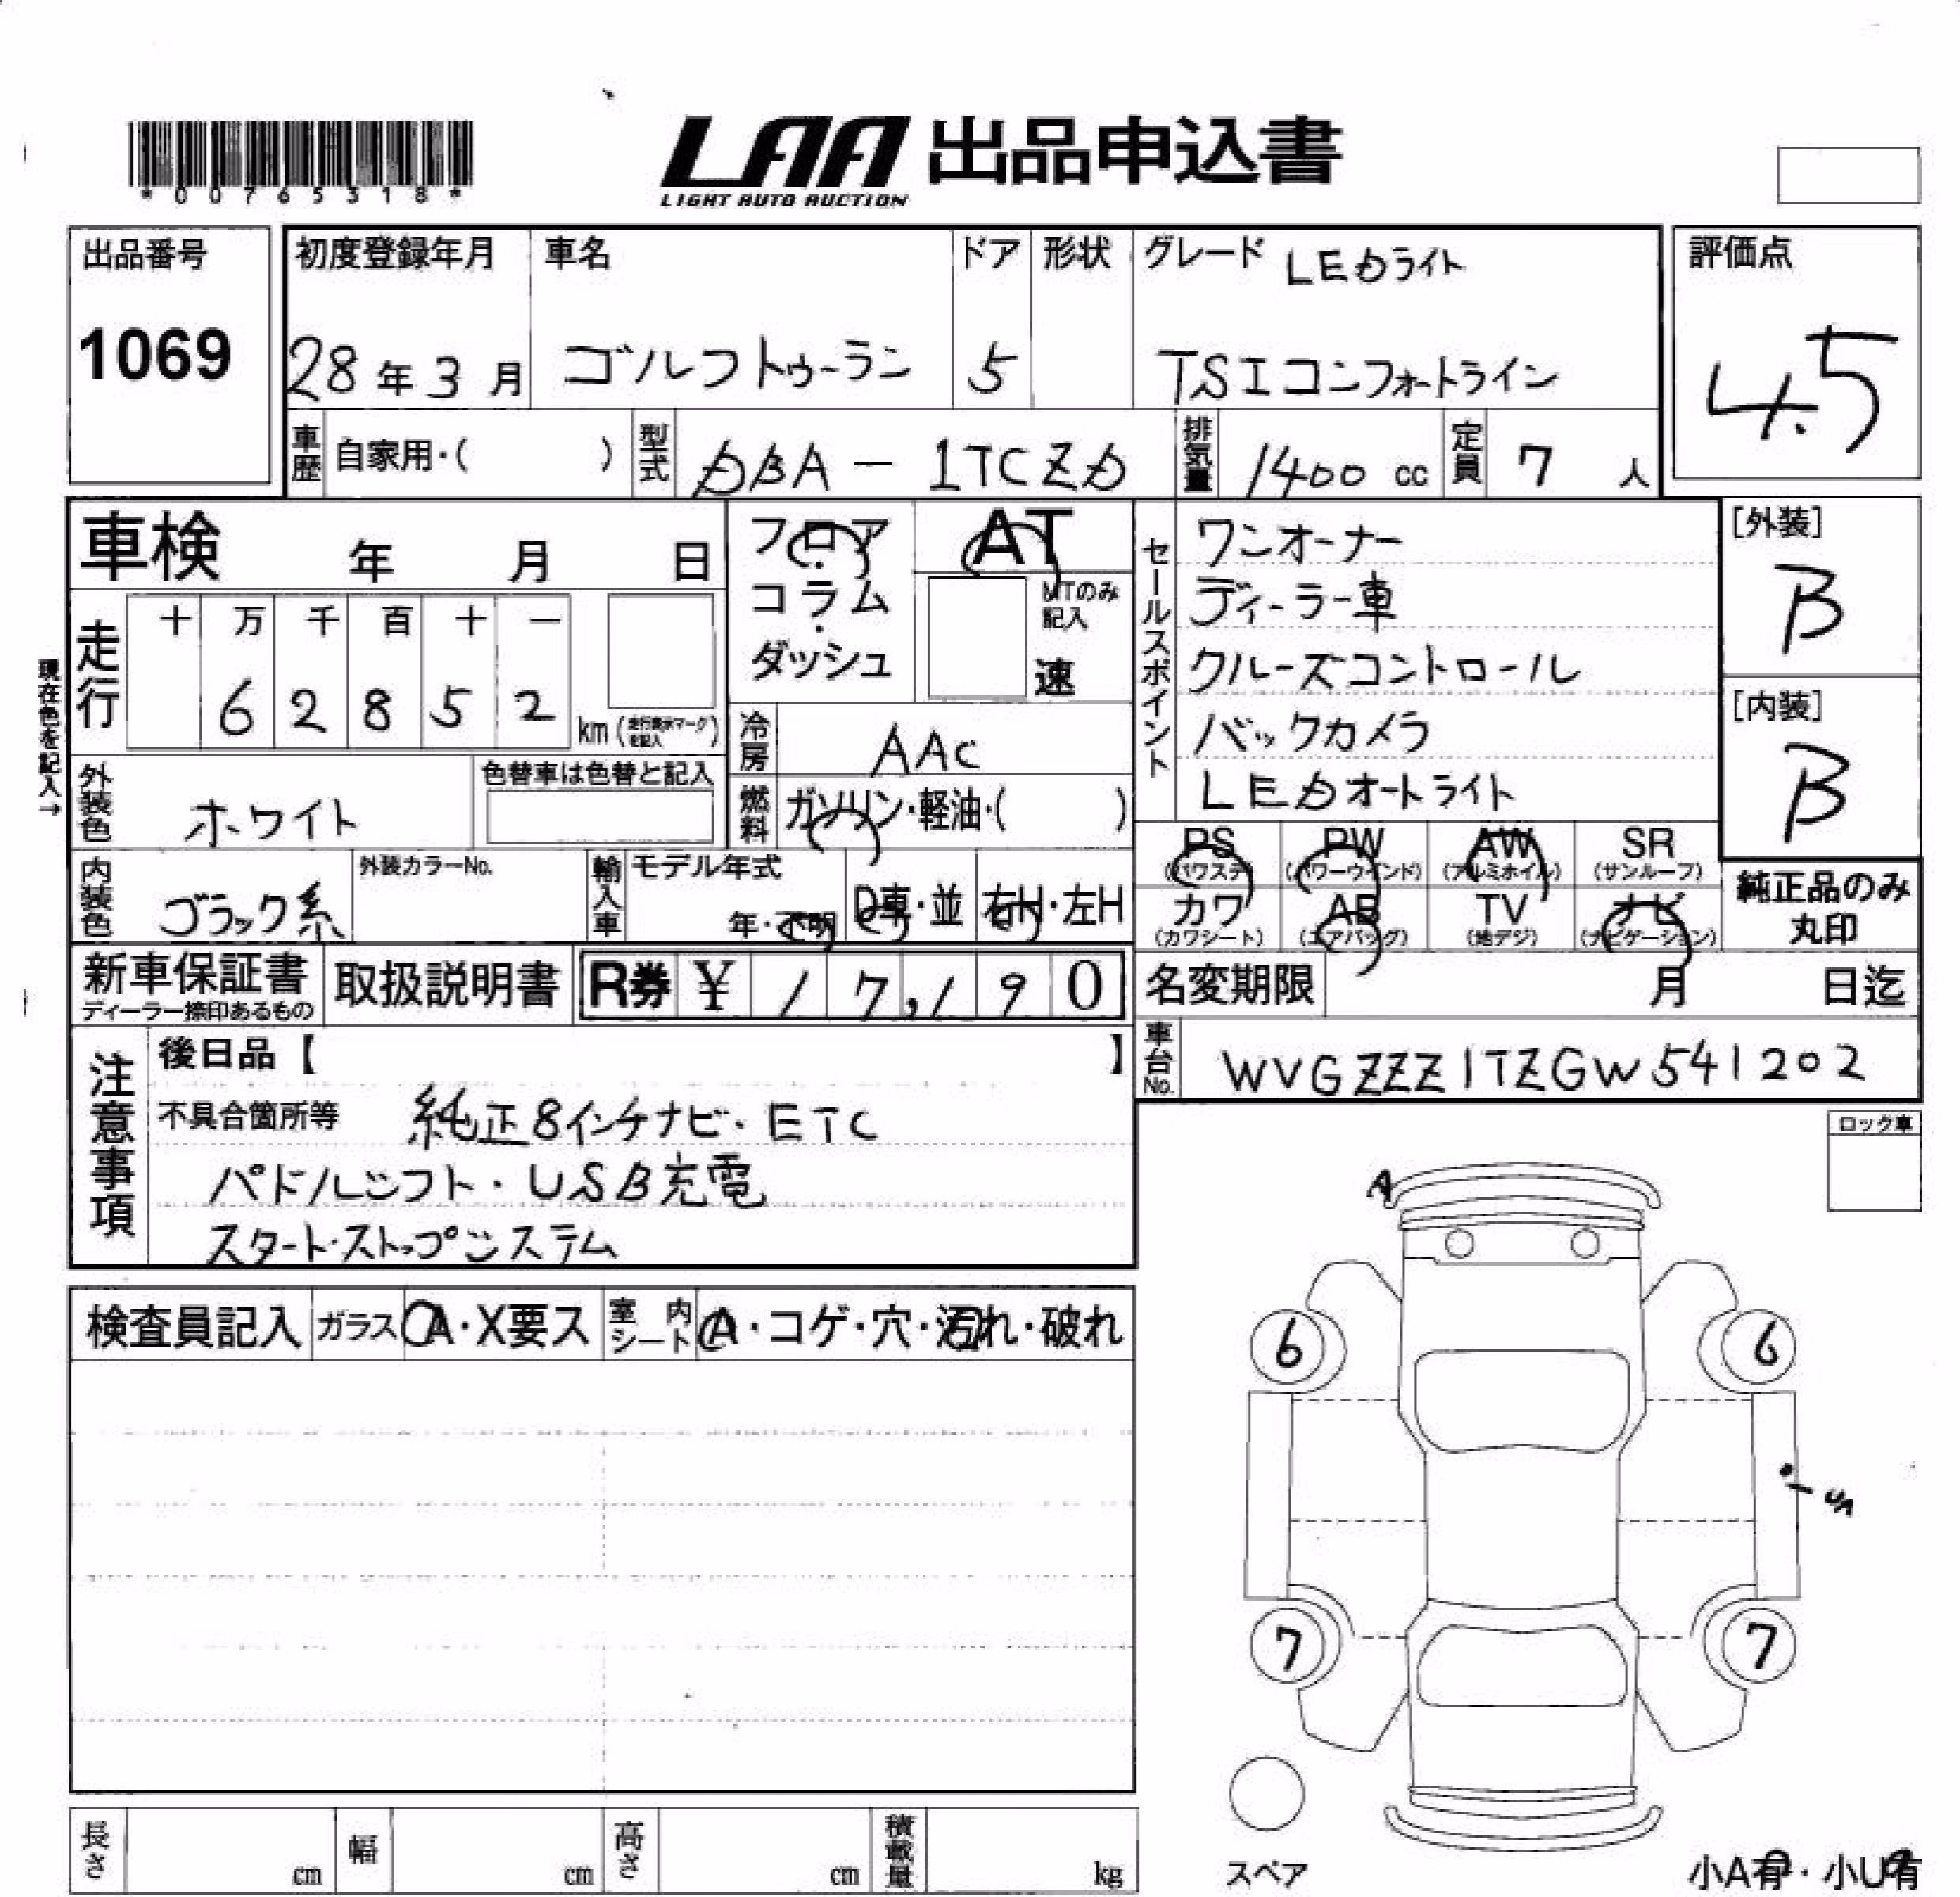 *00765318*
LAA 出品申込書
LIGHT AUTO AUCTION
出品番号
1069
初度登録年月
28年3月
車名
ゴルフトゥーラン
ドア
5
形状
グレード LEDライト
TSIコンフォートライン
評価点
4.5
車歴 自家用・( )
型式 DBA－1TCZD
排気量 1400cc
定員 7人
車検 年 月 日
フロア・コラム・ダッシュ
AT
MTのみ記入
速
セールスポイント
ワンオーナー
ディーラー車
クルーズコントロール
バックカメラ
LEDオートライト
[外装]
B
[内装]
B
現在色を記入→
走行
十 万 千 百 十 一
6 2 8 5 2
km(走行表示マークを記入)
冷房 AAC
外装色 ホワイト
色替車は色替と記入
燃料 ガソリン・軽油・( )
PS (パワステ)
PW (パワーウインド)
AW (アルミホイル)
SR (サンルーフ)
カワ (カワシート)
AB (エアバッグ)
TV (地デジ)
ナビ (ナビゲーション)
純正品のみ丸印
内装色 ブラック系
外装カラーNo.
輸入車
モデル年式
年・不明
D車・並
右H・左H
新車保証書
ディーラー捺印あるもの
取扱説明書
R券 ¥ 17,190
名変期限 月 日迄
車台No. WVGZZZ1TZGW541202
注意事項
後日品【 】
不具合箇所等 純正8インチナビ・ETC
パドルシフト・USB充電
スタート・ストップシステム
ロック車
A
検査員記入
ガラス A・X要ス
室内シート A・コゲ・穴・汚れ・破れ
6 6
UA
7 7
スペア
小A有・小U有
長さ cm
幅 cm
高さ cm
積載量 kg